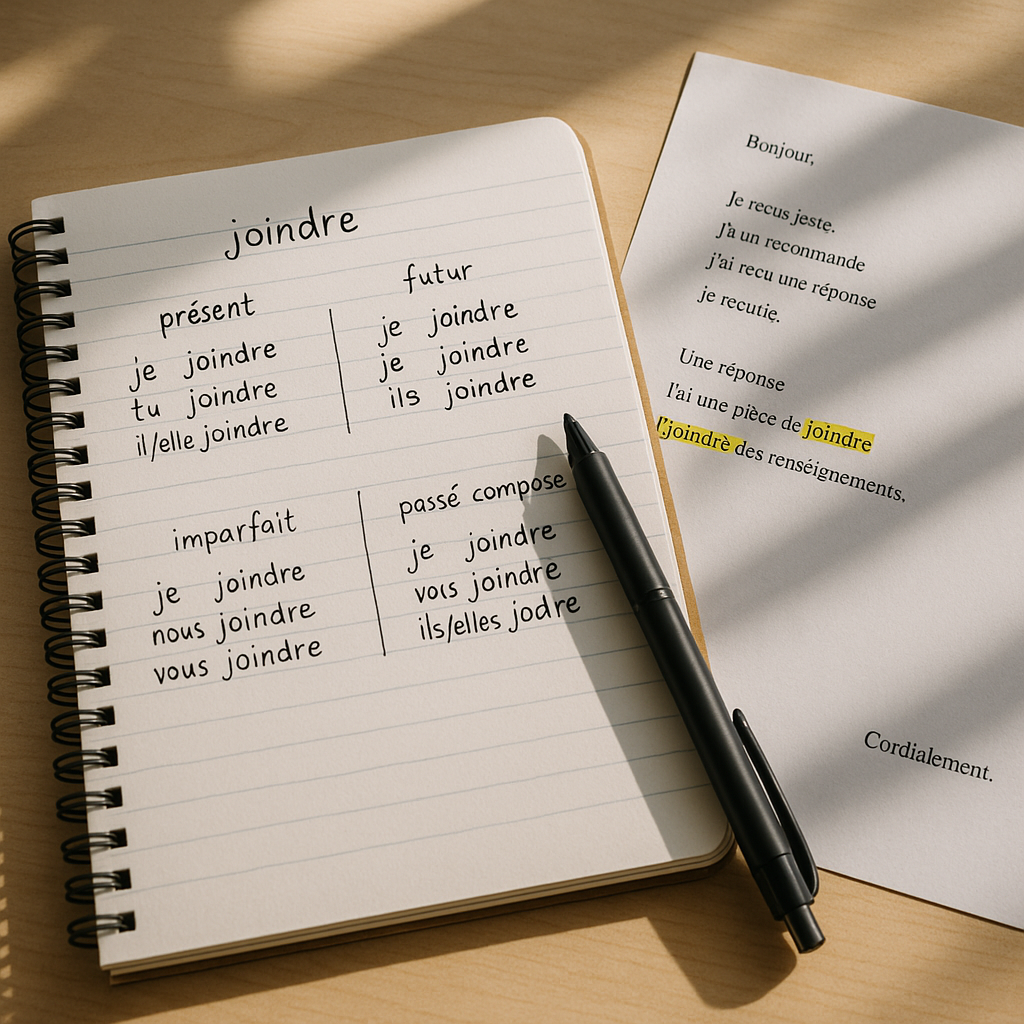 joindre
présent
je joindre
tu joindre
il/elle joindre
futur
je joindre
je joindre
ils joindre
imparfait
je joindre
nous joindre
vous joindre
passé compose
je joindre
voıs joindre
ils/elles jodre
Bonjour,
Je recus jeste.
J'a un reconmande
j'ai recu une réponse
je recutie.
Une réponse
J'ai une pièce de joindre
l'joindrè des renséignements.
Cordialement.